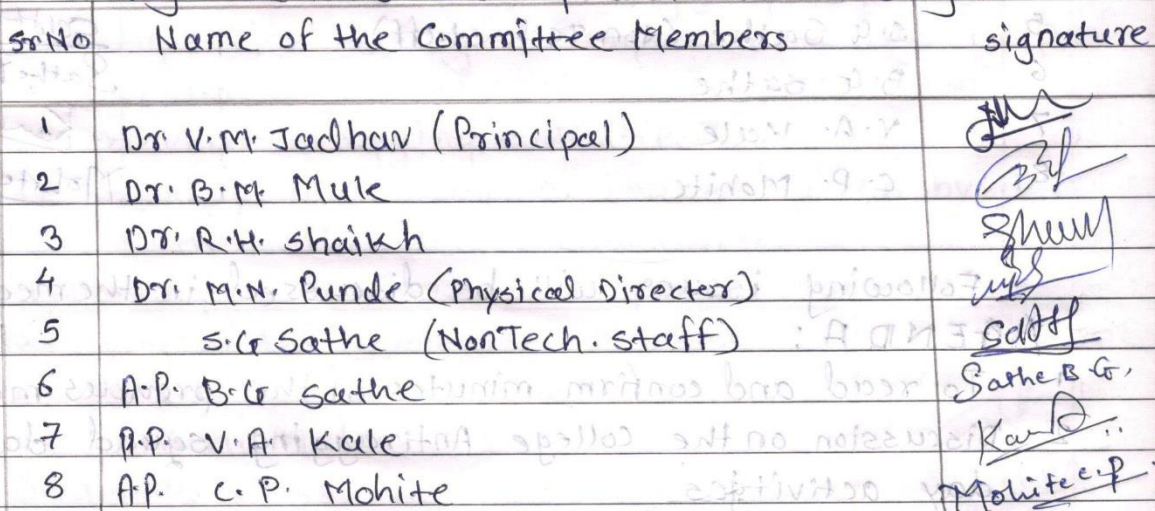 Sr No Name of the Committee Members signature
1 Dr. V.M. Jadhav (Principal)
2 Dr. B.M. Mule
3 Dr. R.H. Shaikh
4 Dr. M.N. Punde (Physical Director)
5 S.G Sathe (Non Tech. staff)
6 A.P. B.G Sathe Sathe B G.
7 A.P. V.A Kale
8 A.P. C.P. Mohite Mohite C.P